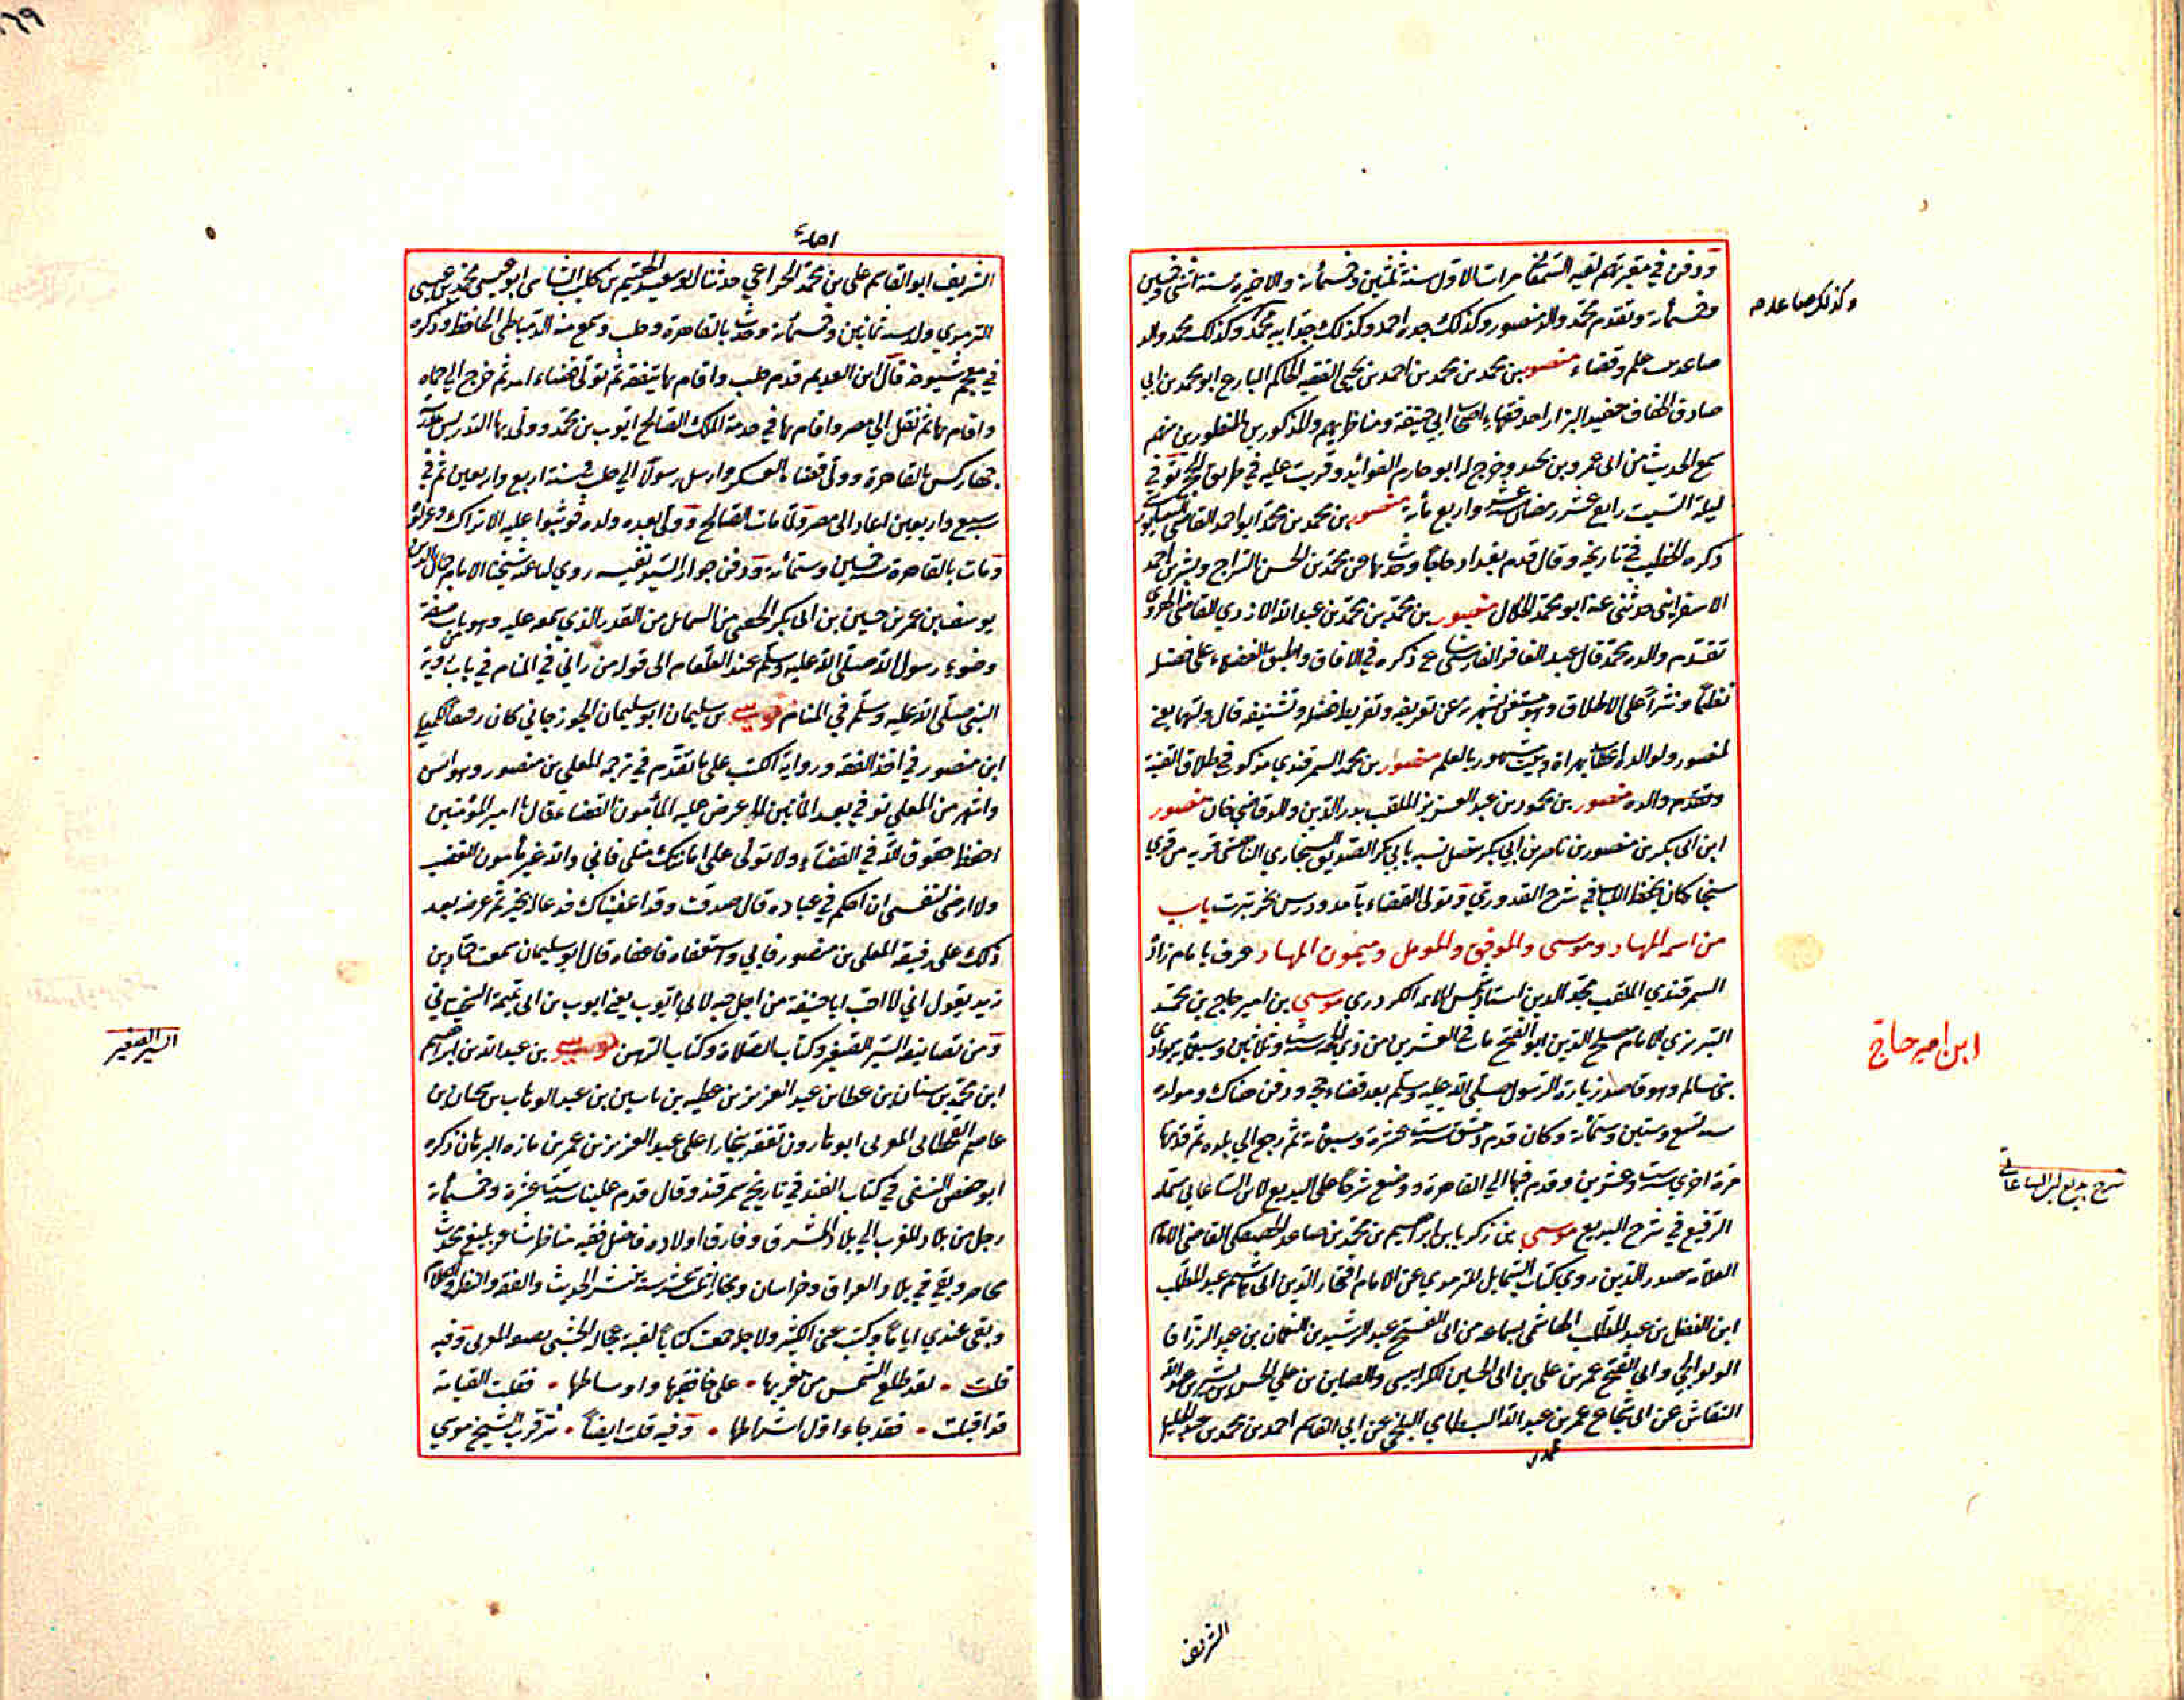 ودفن في مقبرتهم لقيه السمعاني مرات الاول سنة ثلثين وخمسمائة والاخيرة سنة اثنتى وخمسين
وخمسمائة وتقدم محمد والد منصور وكذلك جده احمد وكذلك جد ابيه محمد وكذلك محمد والد
وكذلك صاعد
صاعد بيت علم وقضاء منصور بن محمد بن محمد بن احمد بن يحيى الفقيه الحاكم البارع ابو محمد بن ابي
صادق الخفاف حفيد البزار احد فقهاء اصحاب ابي حنيفة ومناظريهم والمذكورين المنظورين منهم
سمع الحديث من ابى عمرو بن نجيد وخرج له ابو حازم الفوائد وقريت عليه في طريق الحج توفي
ليلة السبت رابع عشر رمضان سنة واربع مائة منصور بن محمد بن محمد ابو احمد القاضي
ذكره الخطيب في تاريخه وقال قدم بغداد حاجا وحدث بها عن محمد بن الحسن السراج وبشر بن احمد
الاسفرائنى حدثنى عنه ابو محمد الخلال منصور بن محمد بن محمد بن عبد الله الازدي القاضى الهروي
تقدم والده محمد قال عبد الغافر الفارسي شاع ذكره في الافاق واطبق الفضلاء على فضله
نظما ونثرا على الاطلاق وهو مستغن بشهرته عن تعريفه وتقريظ فضله وتشنيفه قال ولتهما يعني
لمنصور ولوالده اعقاب بهراة وبيت مشهور بالعلم منصور بن محمد السمرقندي مذكور في طلاق القنية
وتقدم والده منصور بن محمود بن عبد العزيز الملقب بدر الدين والد قاضى خان منصور
ابن ابى بكر بن منصور بن ناصر بن ابي بكر متصل نسبه بابي بكر الصديق السنجاري قرية من قري
سنجار كان يحفظ اللباب في شرح القدوري وتولى القضاء بآمد ودرس بخرتبرت باب
من اسمه المهاد وموسى والموفق والمومل وميمون المهاد عرف بامام زاد
السمرقندي الملقب مجد الدين استاذ شمس الائمة الكردري موسى بن امير حاج بن محمد
ابن امير حاج
التبريزي الامام مصلح الدين ابو الفتح مات في العشرين من ذي الحجة سنة ست وثلاثين وسبعمائة بوادي
بنى سالم وهو قاصد زيارة الرسول صلى الله عليه وسلم بعد قضاء حجه ودفن هناك ومولده
سنة تسع وستين وستمائة وكان قدم دمشق سنة ست عشرة وسبعمائة ثم رجع الي بلده ثم قدمها
مرة اخري سنة ست وعشرين وقدم فيها الي القاهرة ووضع شرحا على البديع لابن الساعاتي سماه
شرح بديع لابن الساعاتي
الرفيع في شرح البديع موسى بن زكريا بن ابراهيم بن محمد بن صاعد الحصكفي القاضى الامام
العلامة صدر الدين روي كتاب الشمايل للترمذي عن الامام افتخار الدين ابى هاشم عبد المطلب
ابن الفضل بن عبد المطلب الهاشمى بسماعه من ابى الفتح عبد الرشيد بن النعمان بن عبد الرزاق
الولوالجي وابي الفتح عمر بن على بن ابى الحسين الكرابيسى والصاين بن علي الحسن بن بشير بن عبد الله
النقاش عن ابى شجاع عمر بن عبد الله البسطامي البلخي عن ابي القاسم احمد بن محمد بن محمد الخليلي
الشريف
الشريف ابو القاسم على بن محمد الخزاعي حدثنا ابو سعيد الهيثم بن كليب الشاسى ابو عيسى محمد بن عيسى
الترمذي ولد سنة ثمانين وخمسمائة وحدث بالقاهرة وحلب وسمع منه الدمياطى الحافظ وذكره
في معجم شيوخه قال ابن العديم قدم حلب واقام بها يتفقه ثم تولى قضاء امد ثم خرج الي حماه
واقام بها ثم نقل الي مصر واقام بها في خدمة الملك الصالح ايوب بن محمد وولى بها التدريس بمدرسة
جهاركس بالقاهرة وولى قضاء العسكر وارسل رسولا الي حلب في سنة اربع واربعين ثم في
سبع واربعين اعاد الى مصر ولما مات الصالح وولى بعده ولده فوثبوا عليه الاتراك وعزلوه
ومات بالقاهرة سنة خمسين وستمائة ودفن جوار السيدة نفيسه روي لنا عنه شيخنا الامام جمال الدين
يوسف بن عمر بن حسين بن ابى بكر الحنفى من الشمايل من القدر الذي سمعه عليه وهو باب صفة
وضوء رسول الله صلى الله عليه وسلم عند الطعام الى قوله من راني في المنام في باب رؤية
النبي صلى الله عليه وسلم في المنام موسى بن سليمان ابو سليمان الجوزجاني كان رفيقا للمعلى
ابن منصور في اخذ الفقه ورواية الكتب على ما تقدم في ترجمة المعلى بن منصور وهو اسن
واشهر من المعلى توفي بعد المائتين عرض عليه المأمون القضاء فقال يا امير المؤمنين
احفظ حقوق الله في القضاء ولا تولى على امانتك مثلى فاني والله غير مأمون الغضب
ولا ارضى لنفسى ان احكم في عباده قال صدقت وقد اعفيناك فدعا له بخير ثم عرض بعد
ذلك على رفيقه المعلى بن منصور فابي واستعفاه فاعفاه قال ابو سليمان سمعت حماد بن
زيد يقول اني لاحب ابا حنيفة من اجل حبه لابي ايوب يعني ايوب بن ابى تميمة السختياني
ومن تصانيفه السير الصغير وكتاب الصلاة وكتاب الرهن موسى بن عبد الله بن ابراهيم
السير الصغير
ابن محمد بن سنان بن عطا بن عبد العزيز بن عطيه بن ياسين بن عبد الوهاب بن
عاصم القحطاني المغربى ابو هارون تفقه ببخارا على عبد العزيز بن عمر بن مازه البرهان ذكره
ابو حفص النسفى في كتاب القند في تاريخ سمرقند وقال قدم علينا سنة ست عشرة وخمسمائة
رجل من بلاد المغرب الي بلاد المشرق وفارق اولاده فاضل فقيه مناظر شاعر بليغ محدث
محاضر وبقي في بلاد العراق وخراسان وبخارا ينشر الحديث والفقه والنظر والكلام
وبقى عندي اياما وكتب عنى الكثير ولاجله جمعت كتابا لقبته عجالة الحسبى بصفة المغربى وفيه
قلت لقد طلع الشمس من مغربها على خافقيها واوساطها فقلت القيامة
قد اقبلت فقد جاء اول اشراطها وفيه قلت ايضا الشيخ موسي